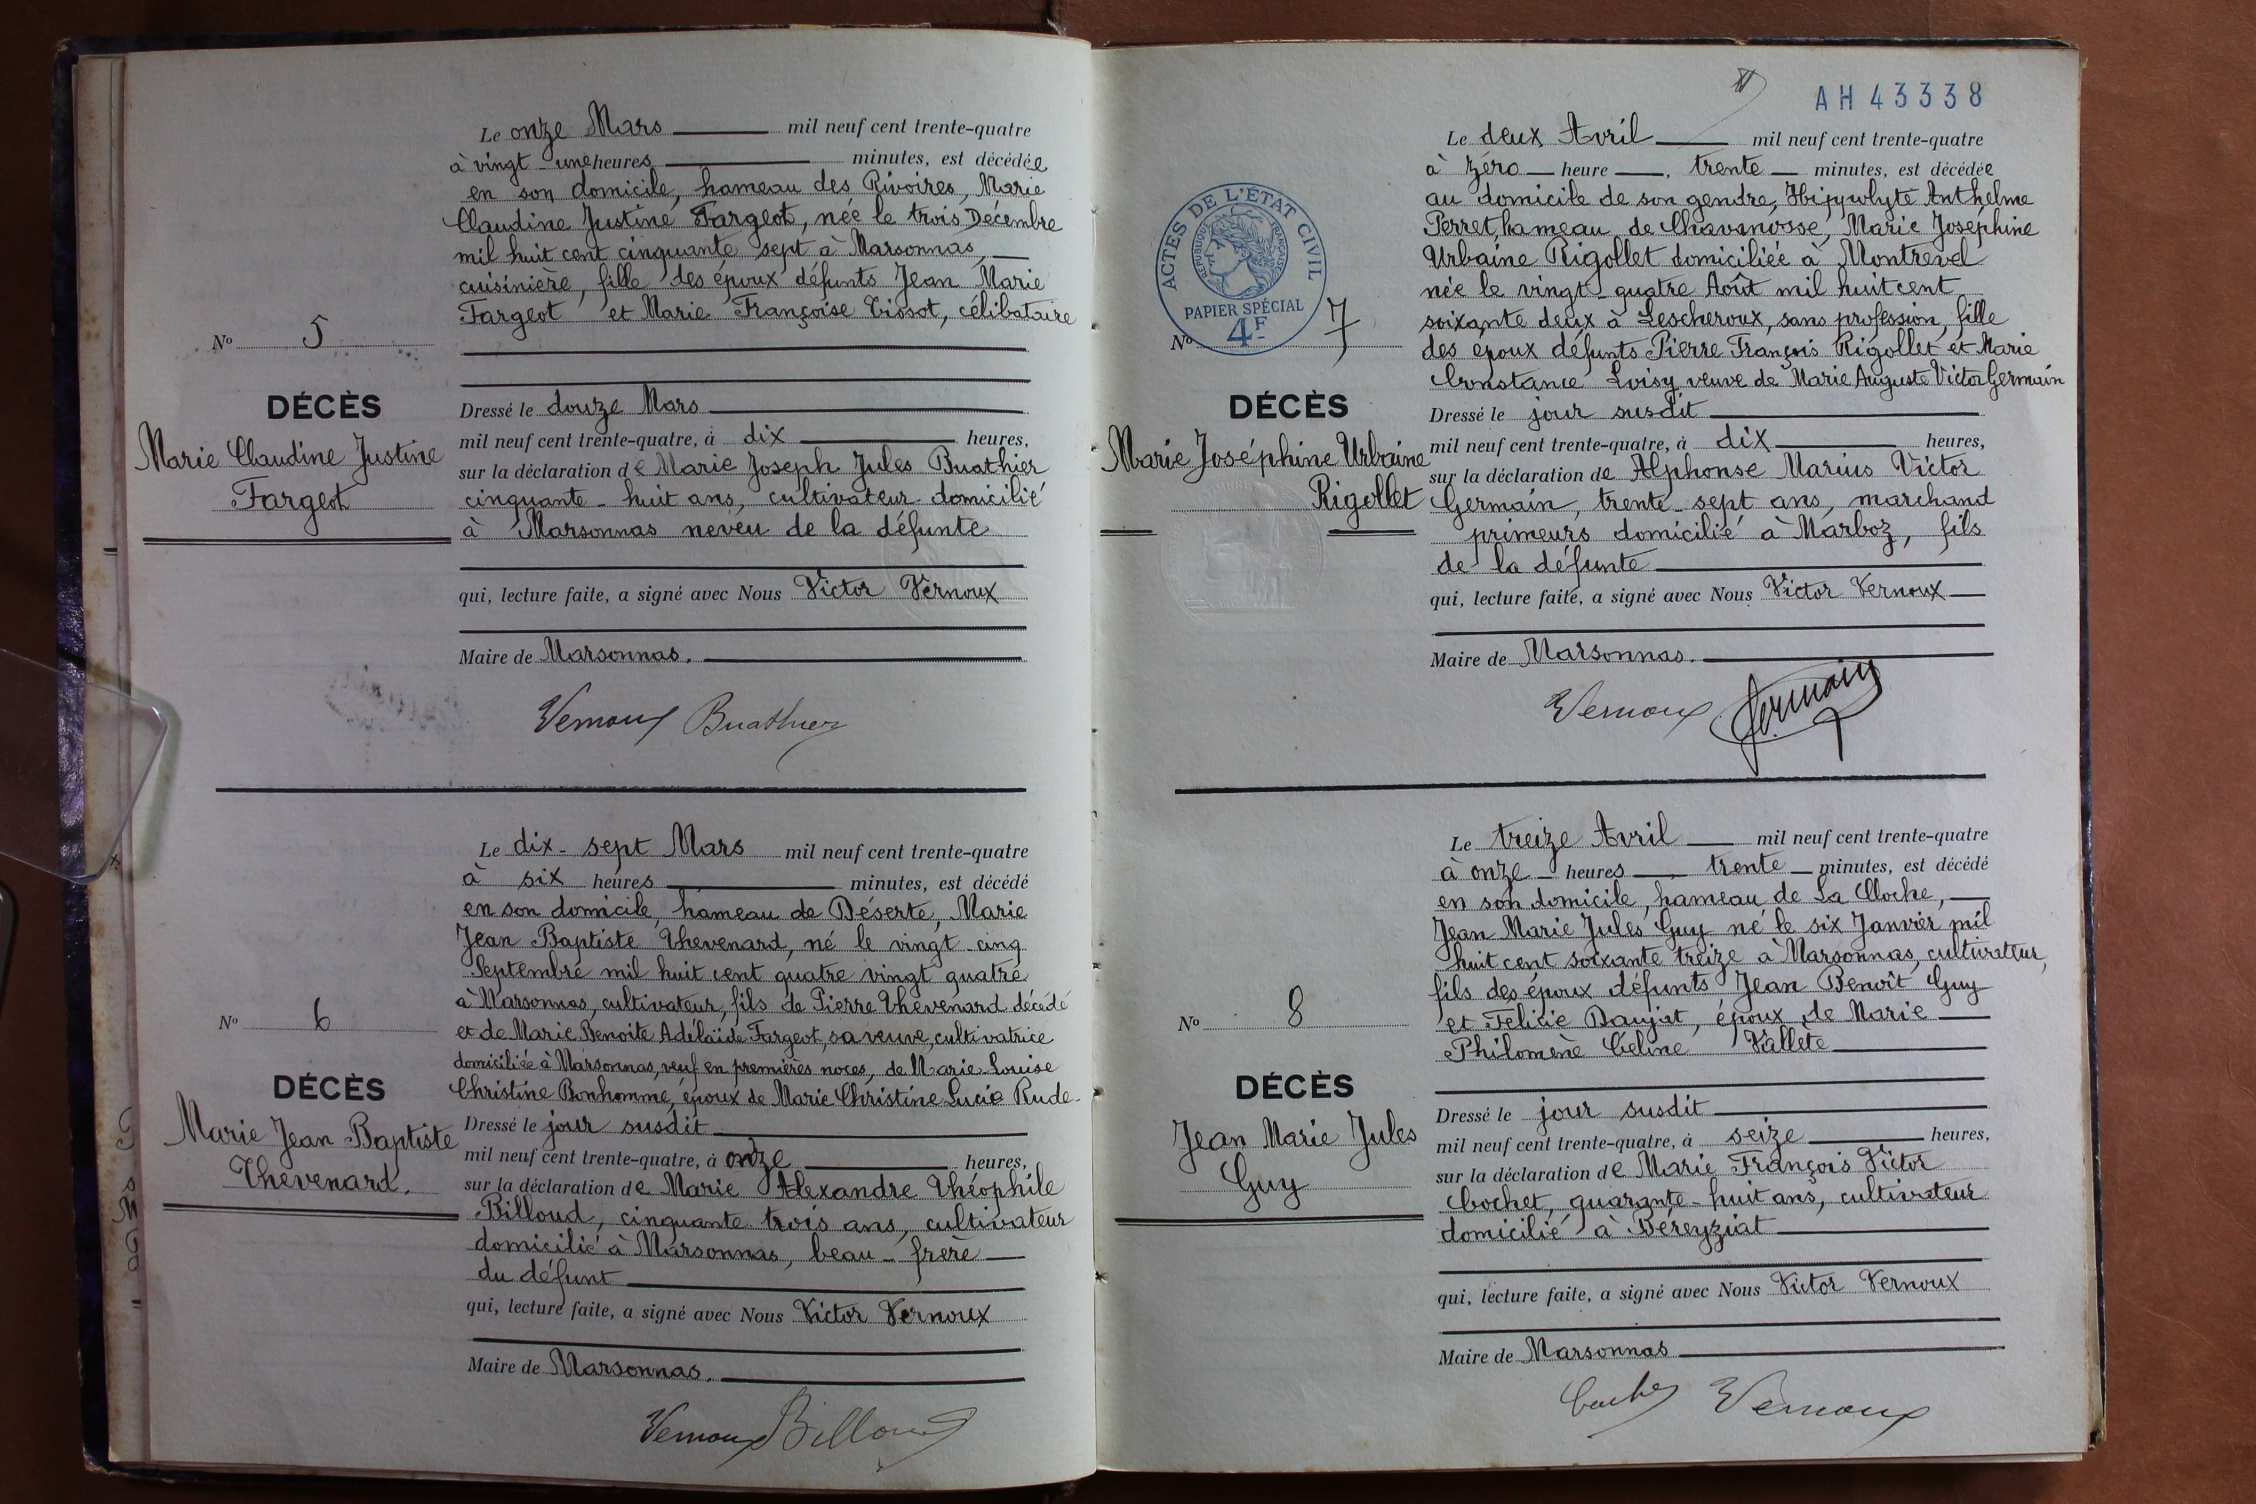 Le onze Mars mil neuf cent trente-quatre
à vingt-une heures minutes, est décédée
en son domicile, hameau des Rivoires, Marie
Claudine Justine Fargeot, née le trois Décembre
mil huit cent cinquante sept à Marsonnas,
cuisinière, fille des époux défunts Jean Marie
Fargeot et Marie Françoise Tissot, célibataire
No 5
DÉCÈS
Marie Claudine Justine
Fargeot
Dressé le douze Mars
mil neuf cent trente-quatre, à dix heures,
sur la déclaration de Marie Joseph Jules Buathier
cinquante-huit ans, cultivateur domicilié
à Marsonnas neveu de la défunte
qui, lecture faite, a signé avec Nous Victor Vernoux
Maire de Marsonnas.
Vernoux Buathier
Le dix-sept Mars mil neuf cent trente-quatre
à six heures minutes, est décédé
en son domicile, hameau de Déserte, Marie
Jean Baptiste Thevenard, né le vingt-cinq
Septembre mil huit cent quatre vingt quatre
à Marsonnas, cultivateur, fils de Pierre Thevenard décédé
et de Marie Benoite Adélaïde Fargeot, sa veuve, cultivatrice
domiciliée à Marsonnas, veuf en premières noces, de Marie-Louise
Christine Bonhomme, époux de Marie Christine Lucie Rude
No 6
DÉCÈS
Marie Jean Baptiste
Thevenard.
Dressé le jour susdit
mil neuf cent trente-quatre, à onze heures,
sur la déclaration de Marie Alexandre Théophile
Billoud, cinquante-trois ans, cultivateur
domicilié à Marsonnas, beau-frère
du défunt
qui, lecture faite, a signé avec Nous Victor Vernoux
Maire de Marsonnas.
Vernoux Billoud
AH 43338
Le deux Avril mil neuf cent trente-quatre
à zéro heure, trente minutes, est décédée
au domicile de son gendre, Hippolyte Anthelme
Perret, hameau de Chavanosse, Marie Joséphine
Urbaine Rigollet domiciliée à Montrevel
née le vingt-quatre Août mil huit cent
soixante deux à Lescheroux, sans profession, fille
des époux défunts Pierre François Rigollet et Marie
Constance Loisy veuve de Marie Auguste Victor Germain
ACTES DE L'ÉTAT CIVIL
RÉPUBLIQUE FRANÇAISE
PAPIER SPÉCIAL
4F
No 7
DÉCÈS
Marie Joséphine Urbaine
Rigollet
Dressé le jour susdit
mil neuf cent trente-quatre, à dix heures,
sur la déclaration de Alphonse Marius Victor
Germain, trente-sept ans, marchand
primeurs domicilié à Marboz, fils
de la défunte
qui, lecture faite, a signé avec Nous Victor Vernoux
Maire de Marsonnas.
Vernoux Germain
Le treize Avril mil neuf cent trente-quatre
à onze heures, trente minutes, est décédé
en son domicile, hameau de La Cloche,
Jean Marie Jules Guy né le six Janvier mil
huit cent soixante treize à Marsonnas, cultivateur,
fils des époux défunts Jean Benoît Guy
et Félicie Daujat, époux de Marie
Philomène Celine Vallete
No 8
DÉCÈS
Jean Marie Jules
Guy
Dressé le jour susdit
mil neuf cent trente-quatre, à seize heures,
sur la déclaration de Marie François Victor
Cochet, quarante-huit ans, cultivateur
domicilié à Béreyziat
qui, lecture faite, a signé avec Nous Victor Vernoux
Maire de Marsonnas
Cochet Vernoux